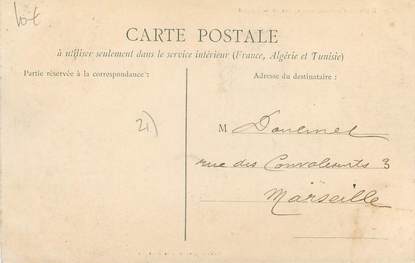 Lot
CARTE POSTALE
à utiliser seulement dans le service intérieur (France, Algérie et Tunisie)
Partie réservée à la correspondance :
Adresse du destinataire :
21)
M
rue des Convalescents 3
Marseille